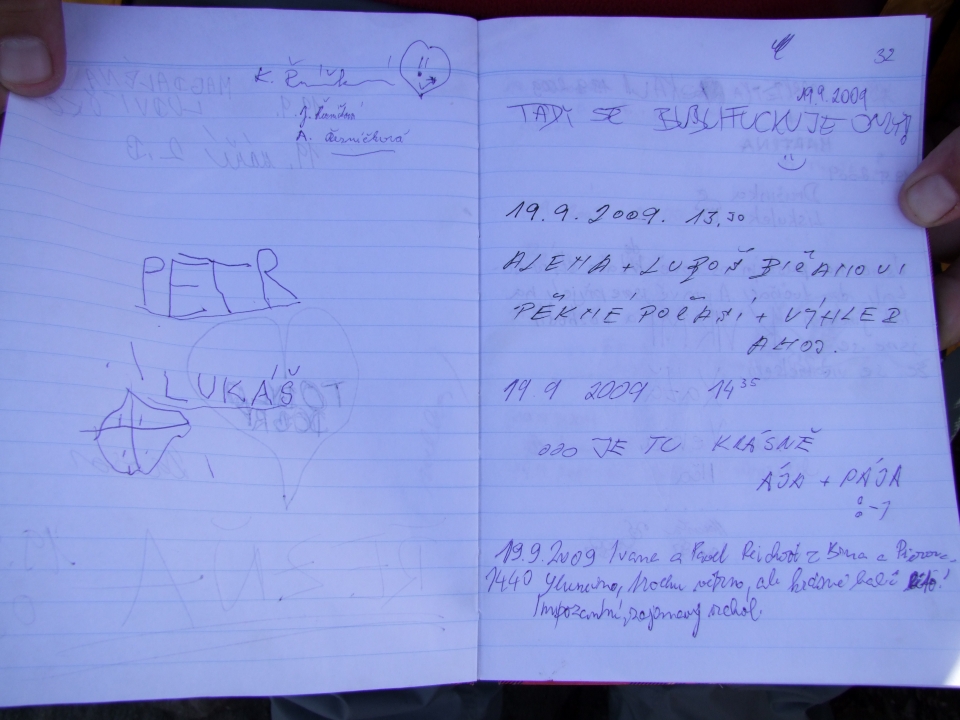 K.
J.
A. Česníčková
PETR
LUKÁŠ
32
19.9.2009
TADY SE
19.9.2009. 13,30
ALENA + LUBOŠ BIČANOVI
PĚKNÉ POČASÍ + VÝHLED
AHOJ.
19 9 2009 14 35
ooo JE TU KRÁSNĚ
ÁJA + PÁJA
:-)
19.9.2009 Ivana a Pavel z Brna a
1440 Slunečno, trochu větrno, ale krásné babí léto!
Impozantní, zajímavý vrchol.